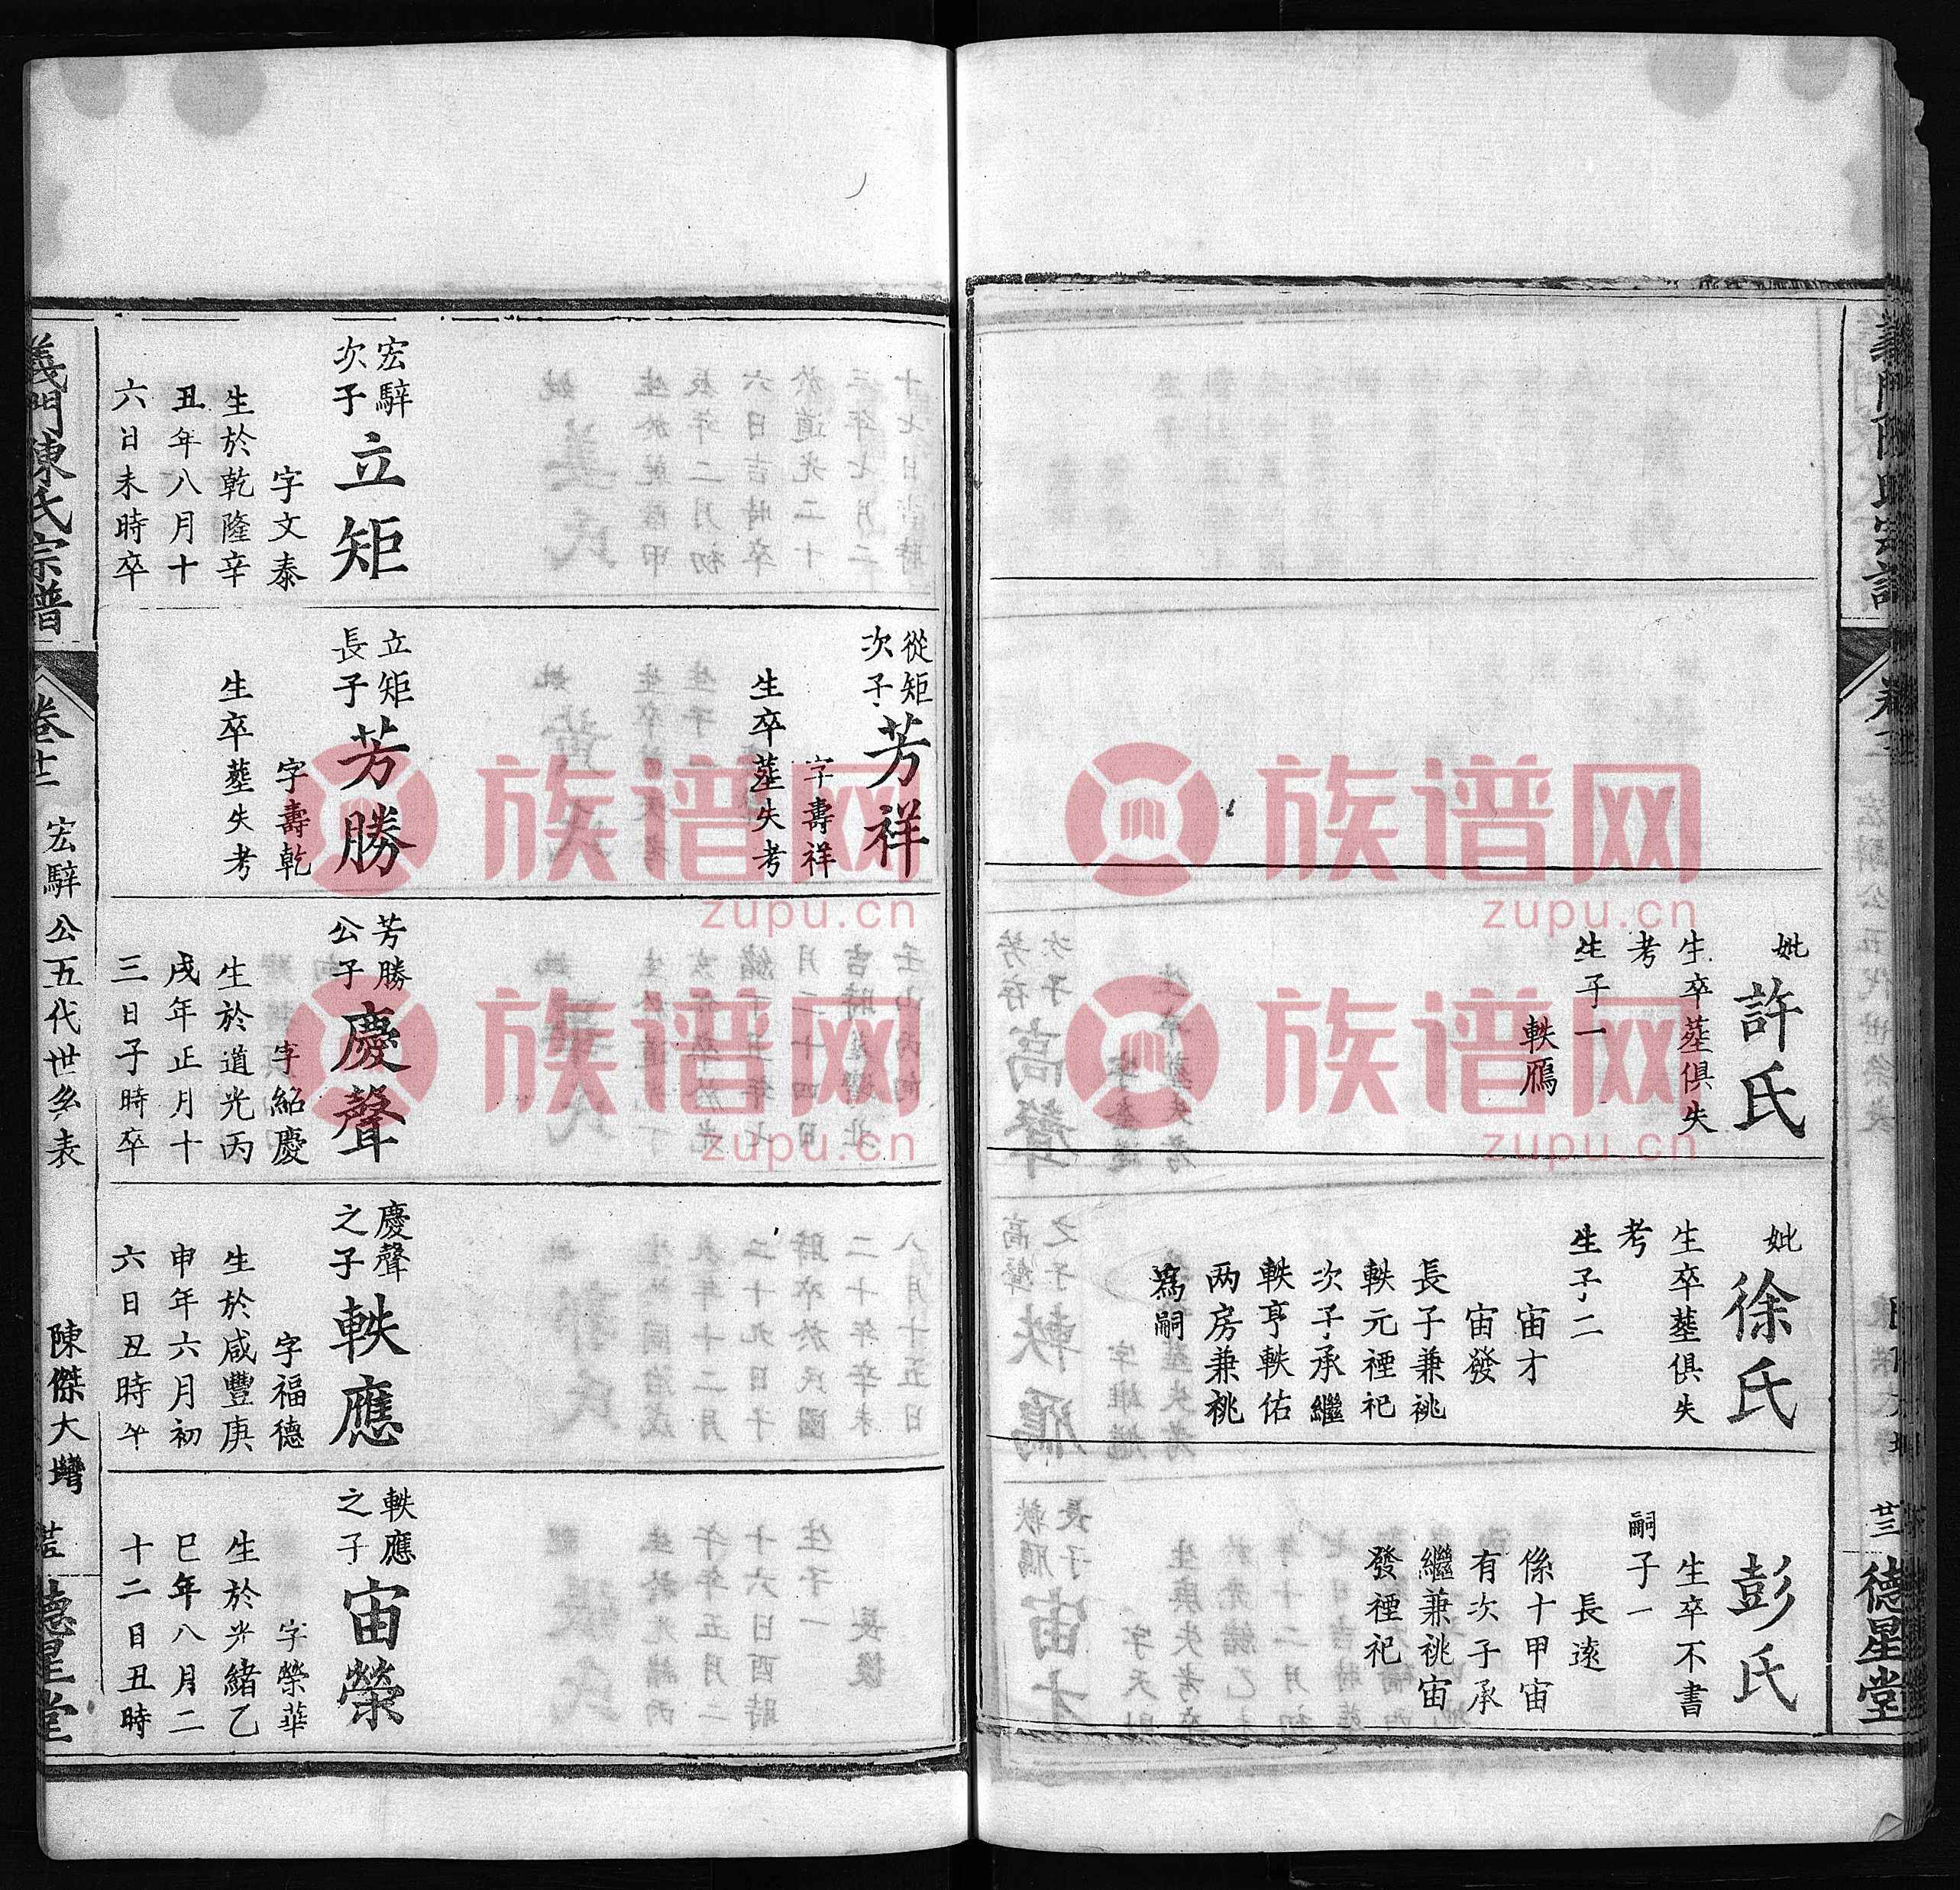 妣
許氏
生卒塟俱失
考
生子一
軼鴈
妣
徐氏
生卒塟俱失
考
生子二
宙才
宙發
長子兼祧
軼元禋祀
次子承繼
軼亨軼佑
两房兼祧
為嗣
彭氏
生卒不書
嗣子一
長遠
係十甲宙
有次子承
繼兼祧宙
發禋祀
德星堂
從矩
次子
芳祥
字壽祥
生卒塟失考
宏騂
次子
立矩
字文泰
生於乾隆辛
丑年八月十
六日未時卒
立矩
長子
芳勝
字壽乾
生卒塟失考
芳勝
公子
慶聲
字紹慶
生於道光丙
戌年正月十
三日子時卒
慶聲
之子
軼應
字福德
生於咸豐庚
申年六月初
六日丑時午
軼應
之子
宙榮
字榮華
生於光緒乙
巳年八月二
十二日丑時
義門陳氏宗譜
卷廿二
宏騂公五代世系表
陳傑大塆
德星堂
族谱网
zupu.cn
族谱网
zupu.cn
族谱网
zupu.cn
族谱网
zupu.cn